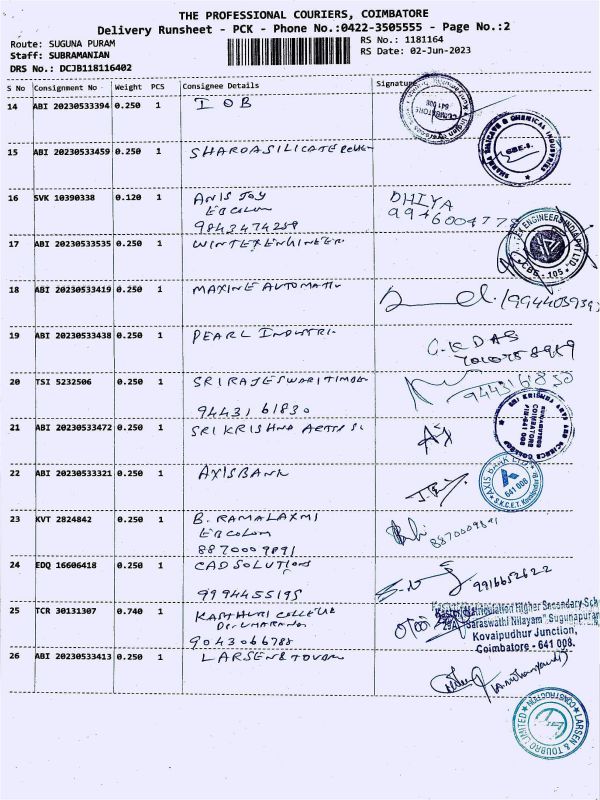 THE PROFESSIONAL COURIERS, COIMBATORE
Delivery Runsheet - PCK - Phone No.:0422-3505555 - Page No.:2
Route: SUGUNA PURAM
RS No.: 1181164
Staff: SUBRAMANIAN
RS Date: 02-Jun-2023
DRS No.: DCJB118116402
S No Consignment No Weight PCS Consignee Details Signature
14 ABI 20230533394 0.250 1 IOB
641 008
15 ABI 20230533459 0.250 1 SHARDASILICATE
SHARDA SILICATE & CHEMICAL INDUSTRIES
16 SVK 10390338 0.120 1 ANIS JOY DHIYA
9843474259
17 ABI 20230533535 0.250 1 WINTEXENGINEER
ENGINEERS INDIA PVT LTD.
CBE - 105
18 ABI 20230533419 0.250 1 MAXINE AUTOMATI
19 ABI 20230533438 0.250 1 PEARL INDUSTRI
C.K DAS
20 TSI 5232506 0.250 1 SRIRAJESWARITIMBER
94431 61830 9443161830
21 ABI 20230533472 0.250 1 SRI KRISHNA ARTS SC
SRI KRISHNA ARTS AND SCIENCE COLLEGE
COIMBATORE
641 008
22 ABI 20230533321 0.250 1 AXISBANK
AXIS BANK LTD.
641 008
S.K.C.E.T. Kovaipudur
23 KVT 2824842 0.250 1 B. RAMALAXMI
8870009891 8870009891
24 EDQ 16606418 0.250 1 CADSOLUTIONS
9994455195 9916652622
25 TCR 30131307 0.740 1 KASTHURI COLLEGE
9043066788
Matriculation Higher Secondary Sch
"Saraswathi Nilayam" Sugunapuram
Kovaipudhur Junction,
Coimbatore - 641 008.
26 ABI 20230533413 0.250 1 LARSEN&TOUBRO
LARSEN & TOUBRO LIMITED
CONSTRUCTION